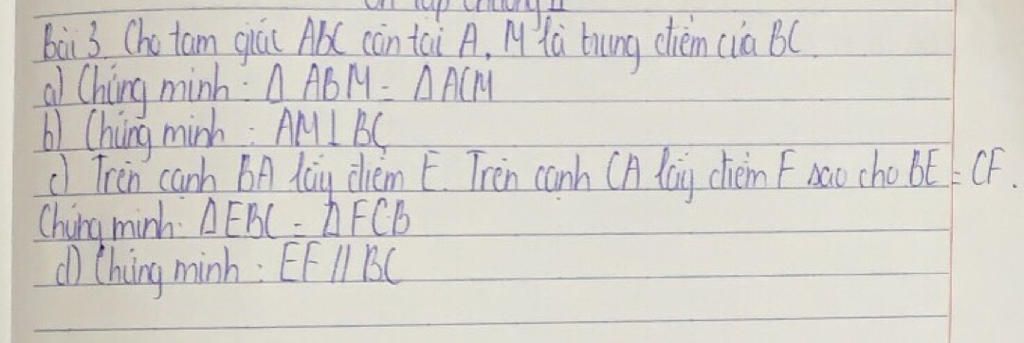 Ôn tập chương II
Bài 3. Cho tam giác ABC cân tại A. M là trung điểm của BC.
a) Chứng minh: Δ ABM = ΔACM
b) Chứng minh: AM⊥BC
c) Trên cạnh BA lấy điểm E. Trên cạnh CA lấy điểm F sao cho BE = CF.
Chứng minh: ΔEBC = ΔFCB
d) Chứng minh: EF // BC